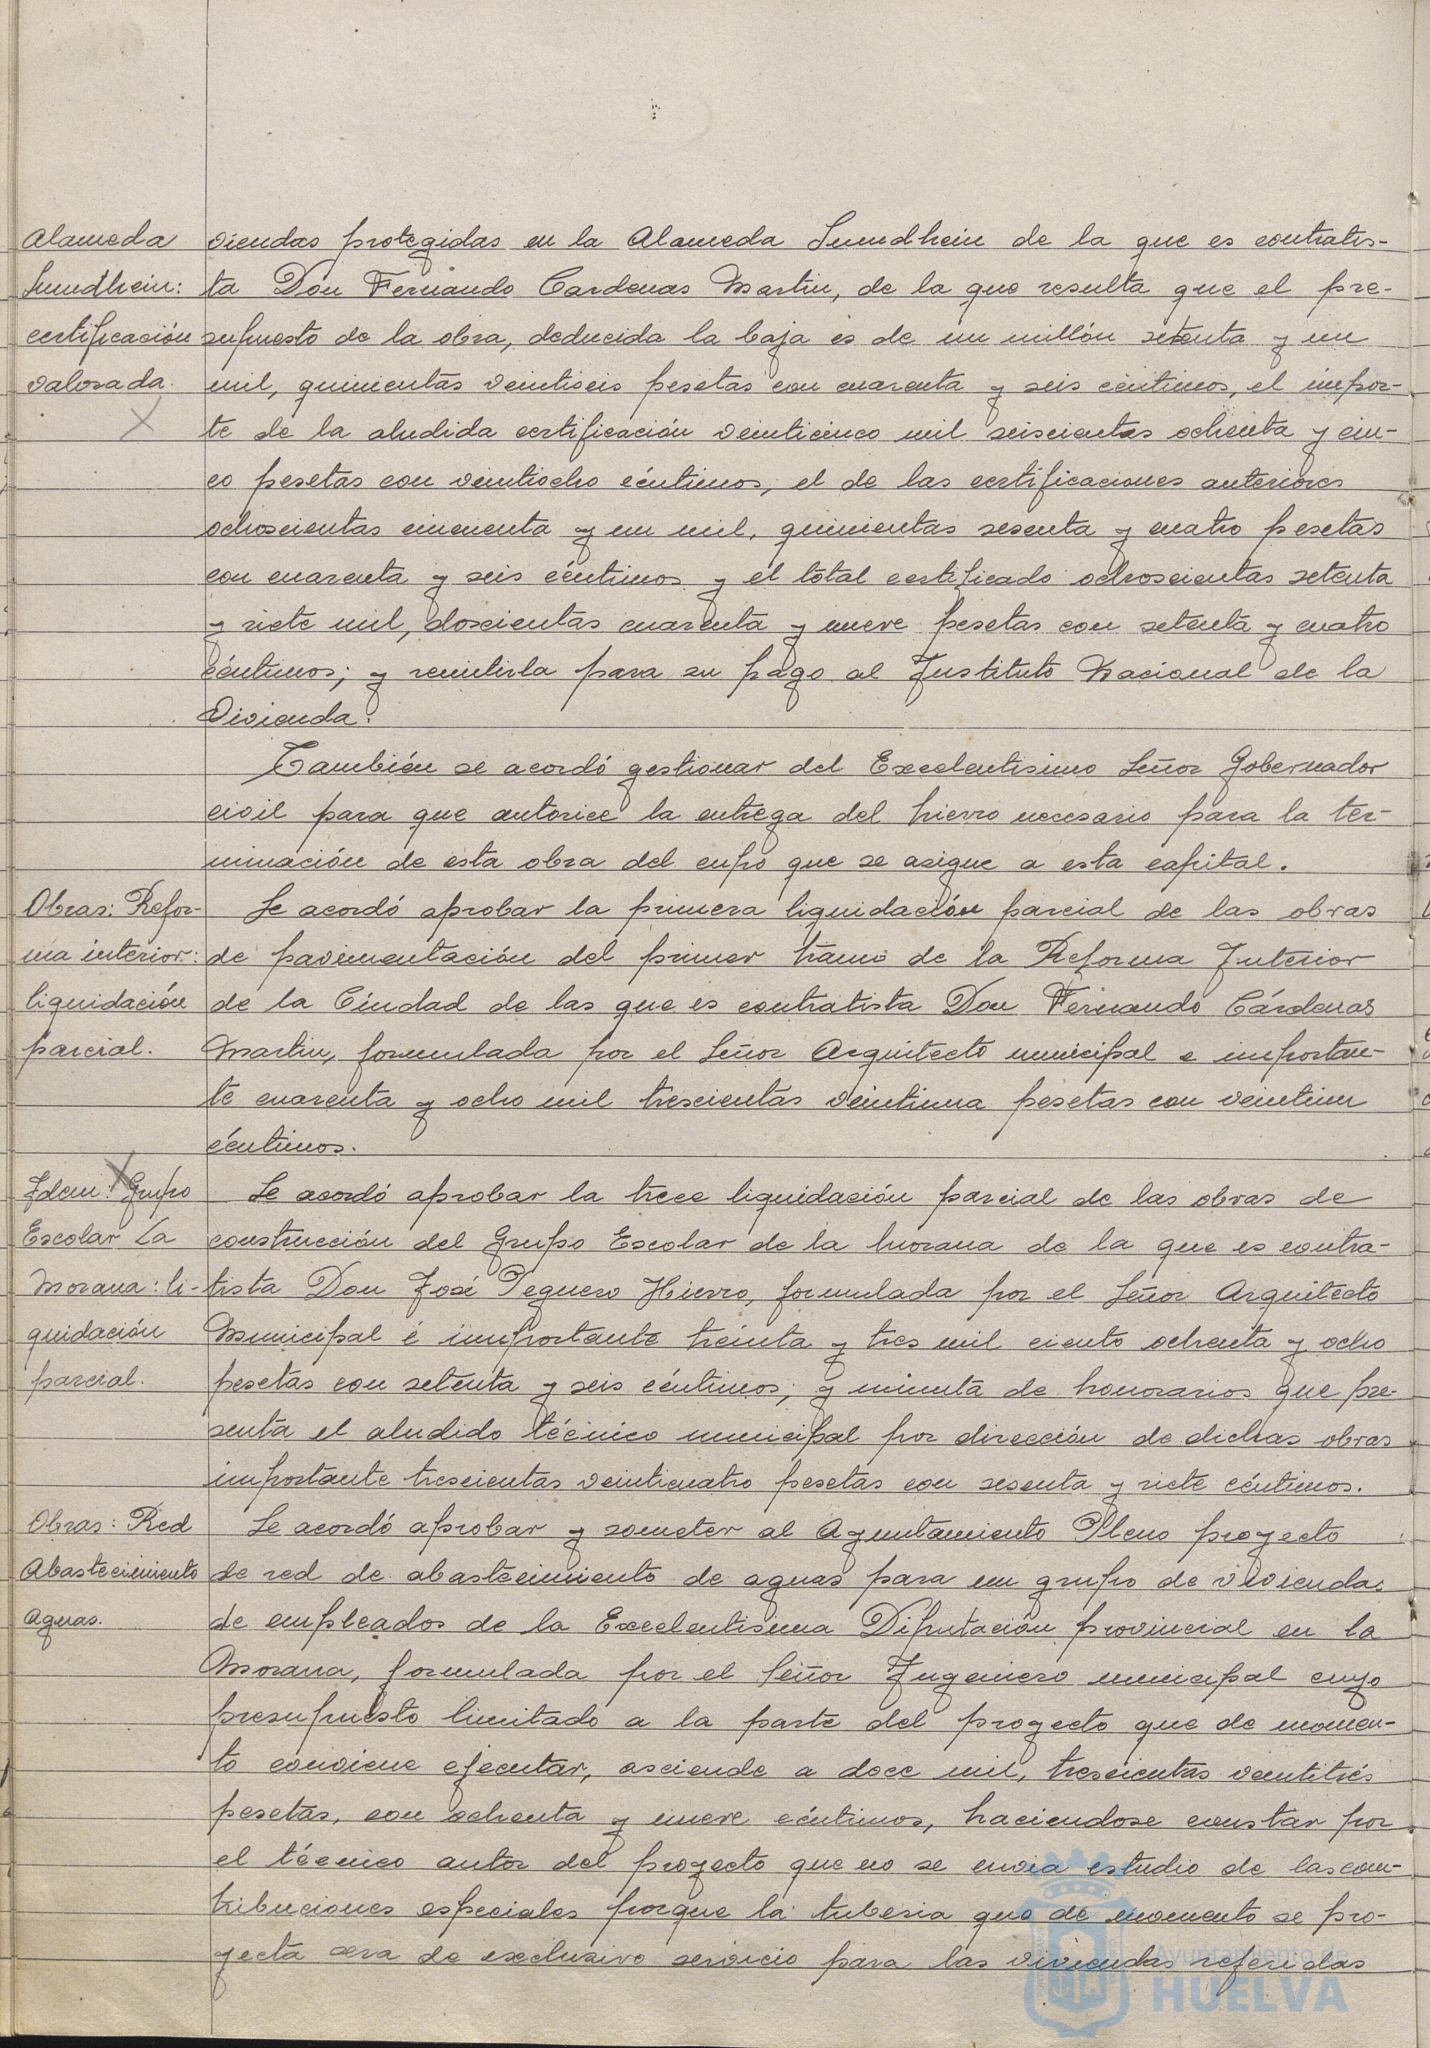 Alameda
Sundhein:
certificación
valorada.
viendas protegidas en la Alameda Sundhein de la que es contratis-
ta Don Fernando Cardenas Martin, de la que resulta que el pre-
supuesto de la obra, deducida la baja es de un millón setenta y un
mil, quinientas veintiseis pesetas con cuarenta y seis céntimos, el impor-
te de la aludida certificación veinticinco mil seiscientas ochenta y cin-
co pesetas con veintiocho céntimos, el de las certificaciones anteriores
ochoscientas cincuenta y un mil, quinientas sesenta y cuatro pesetas
con cuarenta y seis céntimos y el total certificado ochoscientas setenta
y siete mil, doscientas cuarenta y nueve pesetas con setenta y cuatro
céntimos; y remitirla para su pago al Instituto Nacional de la
Vivienda.
También se acordó gestionar del Excelentisimo Señor Gobernador
civil para que autorice la entrega del hierro necesario para la ter-
minación de esta obra del cupo que se asigne a esta capital.
Obras: Refor-
ma interior:
liquidación
parcial.
Se acordó aprobar la primera liquidación parcial de las obras
de pavimentación del primer tramo de la Reforma Interior
de la Ciudad de las que es contratista Don Fernando Cárdenas
Martin, formulada por el Señor Arquitecto municipal e importan-
te cuarenta y ocho mil trescientas veintiuna pesetas con veintiun
céntimos.
Idem: Grupo
Escolar La
Morana: li-
quidación
parcial.
Se acordó aprobar la trece liquidación parcial de las obras de
construcción del Grupo Escolar de la Morana de la que es contra-
tista Don José Peguero Hierro, formulada por el Señor Arquitecto
Municipal é importante treinta y tres mil ciento ochenta y ocho
pesetas con setenta y seis céntimos; y minuta de honorarios que pre-
senta el aludido técnico municipal por dirección de dichas obras
importante trescientas veinticuatro pesetas con sesenta y siete céntimos.
Obras: Red
Abastecimiento
aguas.
Se acordó aprobar y someter al Ayuntamiento Pleno proyecto
de red de abastecimiento de aguas para un grupo de viviendas
de empleados de la Excelentisima Diputación provincial en la
Morana, formulada por el Señor Ingeniero municipal cuyo
presupuesto limitado a la parte del proyecto que de momen-
to conviene ejecutar, asciende a doce mil, trescientas veintitrés
pesetas, con ochenta y nueve céntimos, haciendose constar por
el técnico autor del proyecto que no se envia estudio de las con-
tribuciones especiales porque la tuberia que de momento se pro-
yecta sera de exclusivo servicio para las viviendas referidas
Ayuntamiento de
HUELVA